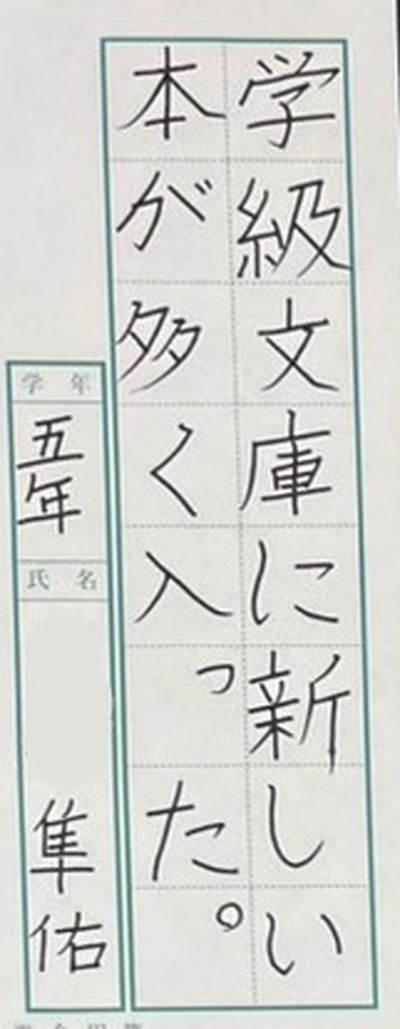 学級文庫に新しい
本が多く入った。
学年
五年
氏名
隼佑